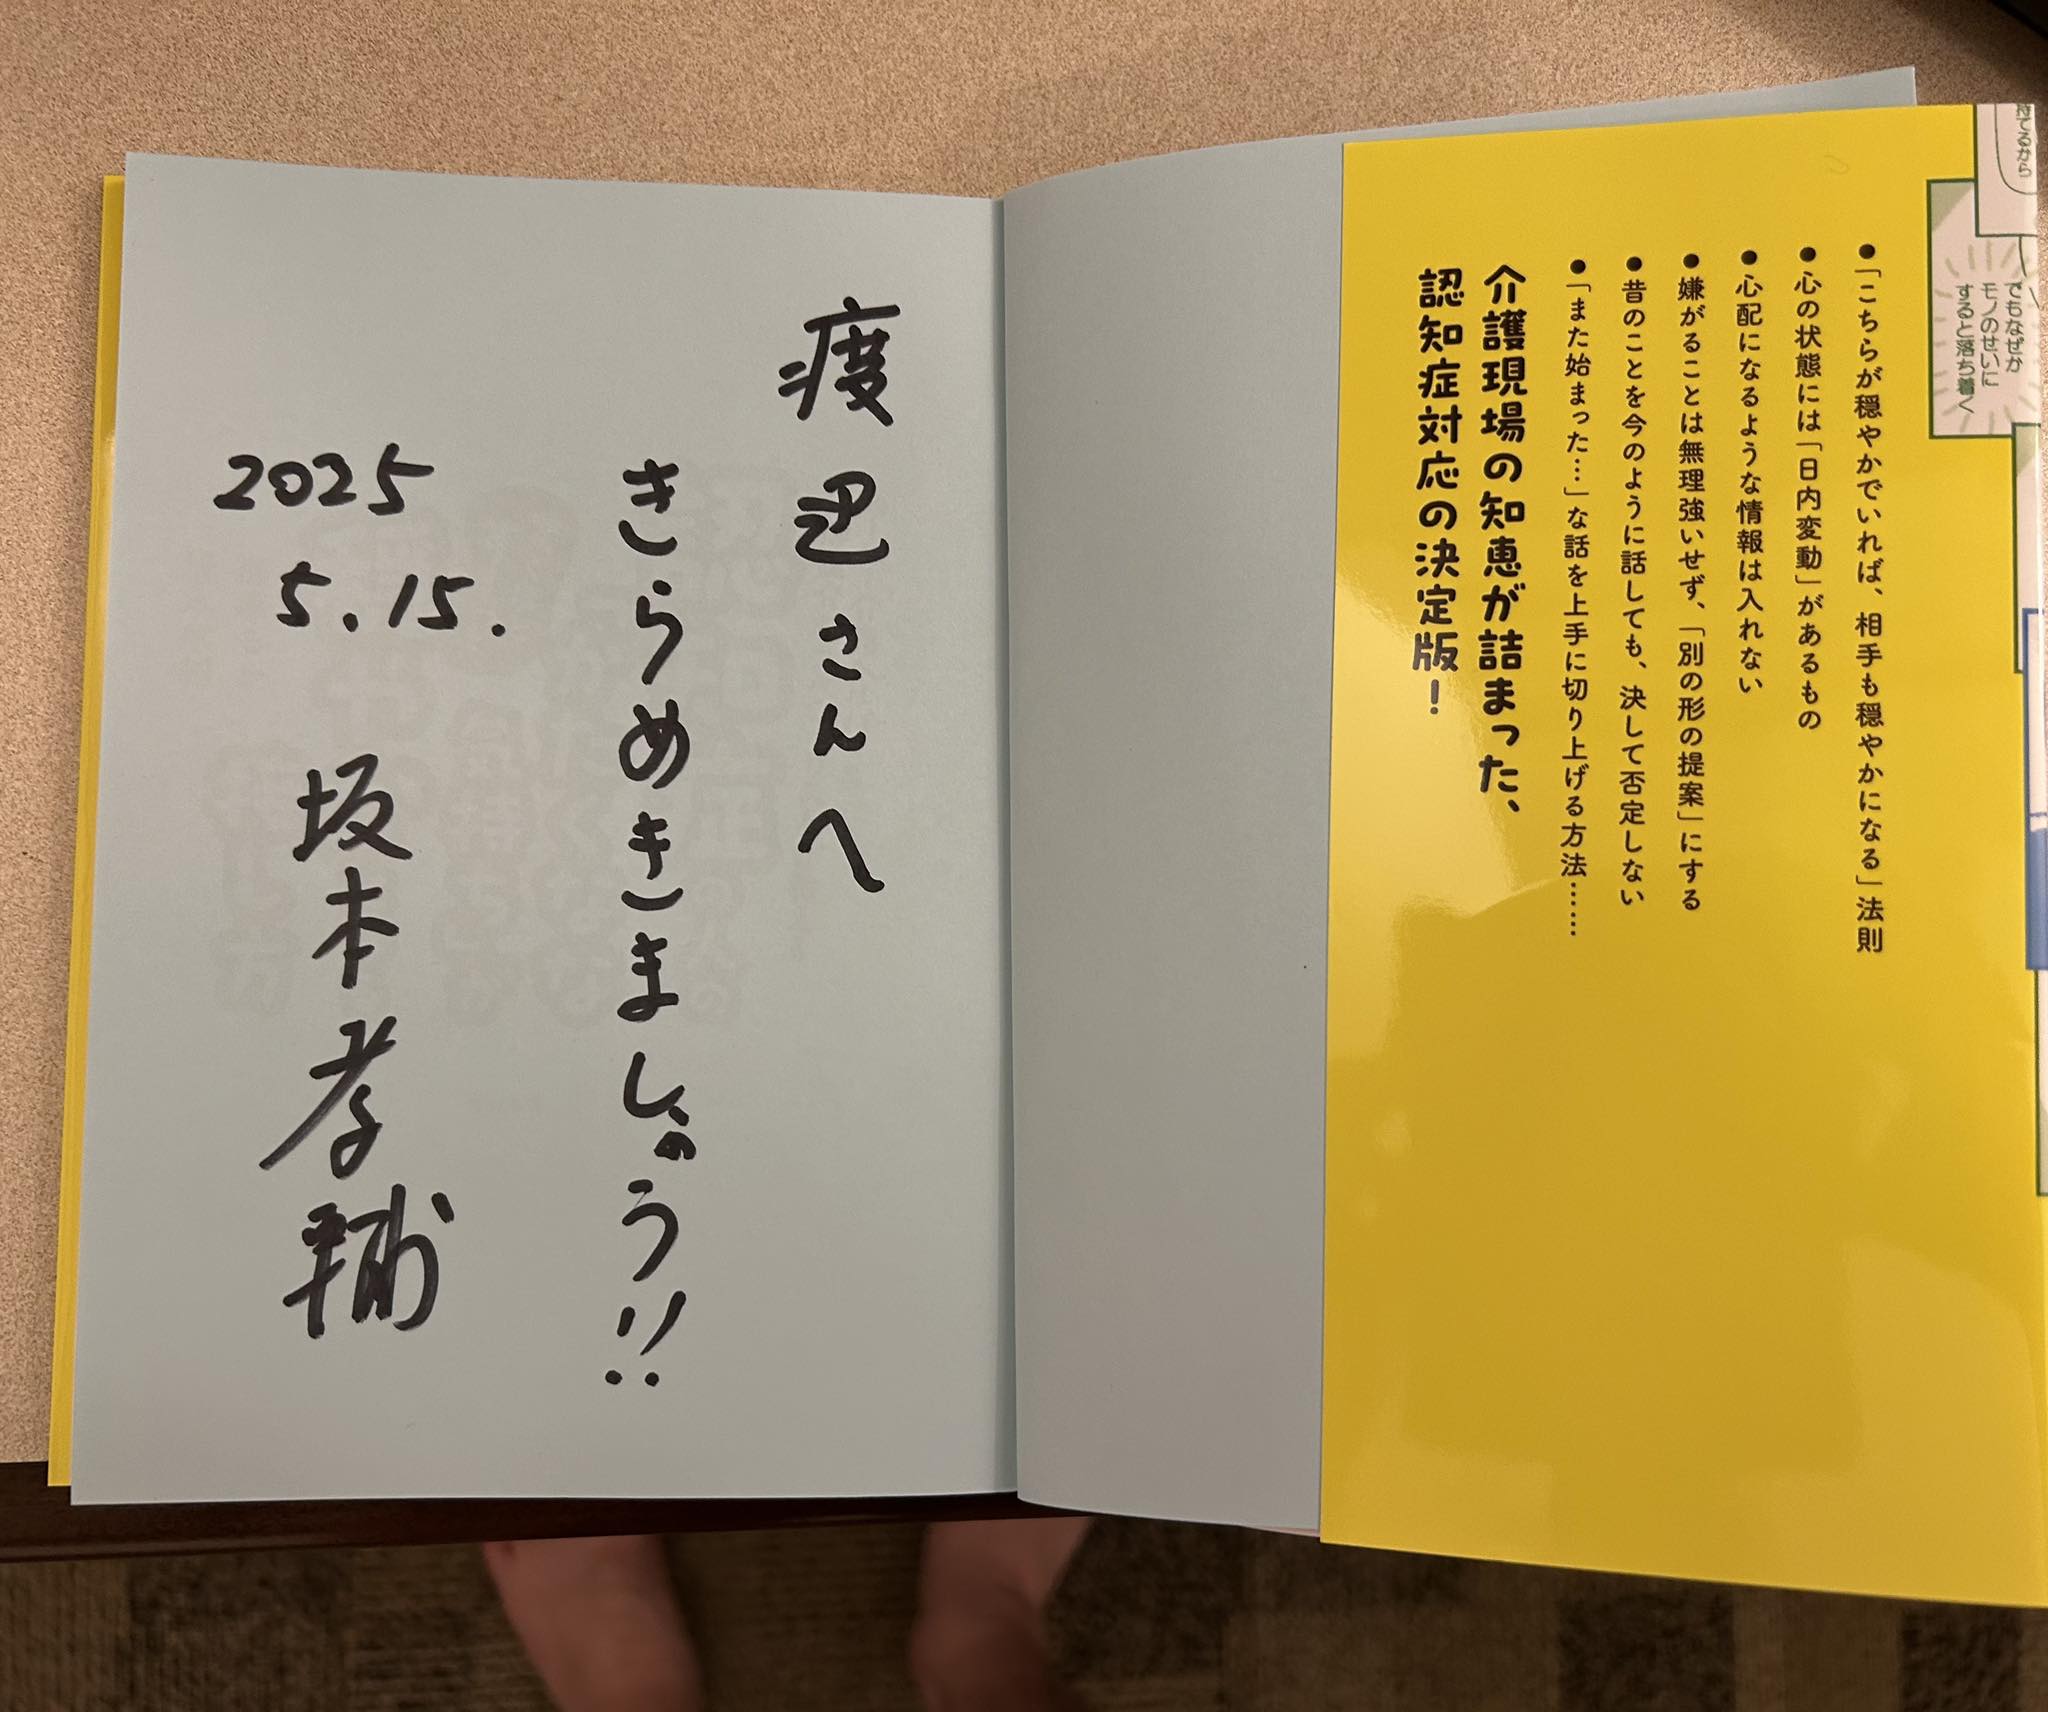 持てるから
でもなぜか
モノのせいに
すると落ち着く
●「こちらが穏やかでいれば、相手も穏やかになる」法則
●心の状態には「日内変動」があるもの
●心配になるような情報は入れない
●嫌がることは無理強いせず、「別の形の提案」にする
●昔のことを今のように話しても、決して否定しない
●「また始まった…」な話を上手に切り上げる方法……
介護現場の知恵が詰まった、
認知症対応の決定版！
渡辺さんへ
きらめきましょう!!
2025
5.15.
坂本孝輔